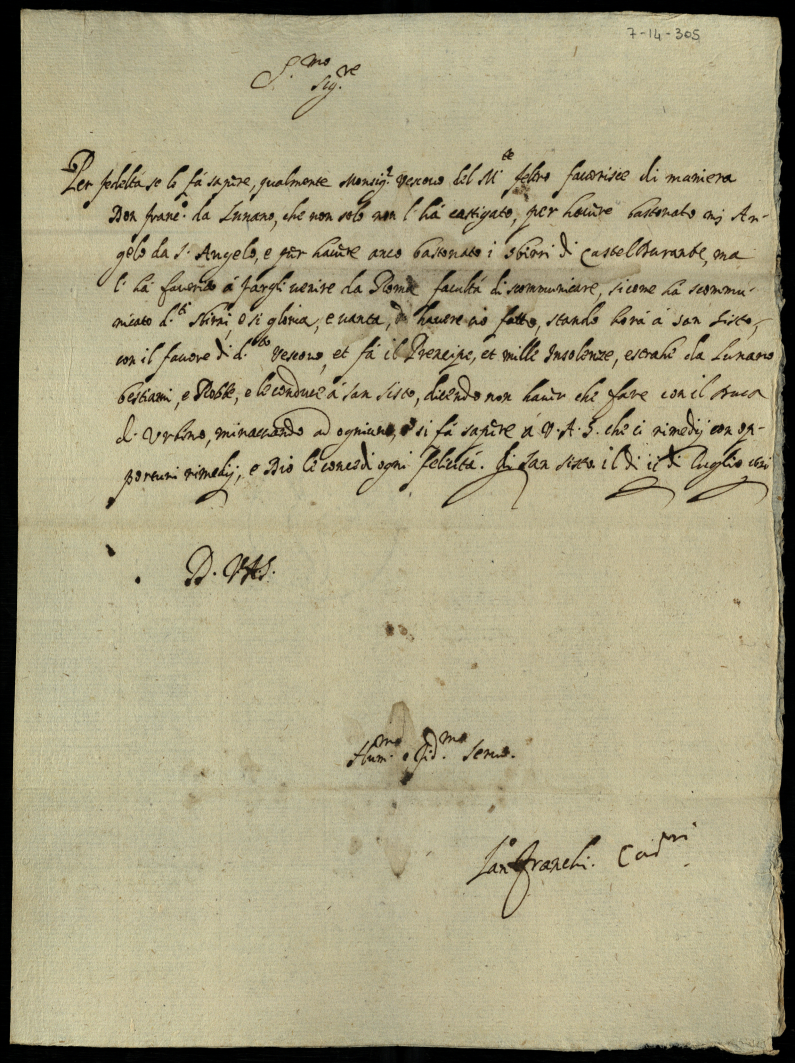 7-14-305
S.mo
Sig.re
Per fedeltà se lo fà sapere, qualmente Monsig.r Vescovo del M.te feltro favorisce di maniera
Don Franc.o da Lunano, che non solo non l'hà castigato, per havere bastonato An-
gelo da S. Angelo, e per havere anco bastonato i sbirri di Castel Durante, ma
l'hà favorito à fargli venire da Roma facultà di scommunicare, sicome ha scommu-
nicato d.ti sbirri, e si gloria, e vanta, di havere ciò fatto, stando horà à san sisto,
con il favore di d.to Vescovo, et fà il Prencipe, et mille Insolenze, estrahe da Lunano
bestiami, e Robbe, e le conduce à san sisto, dicendo non haver che fare con il Duca
d'Urbino, minacciando ad ogniuno, si fà sapere à V.A.S. che ci rimedij con op-
portuni rimedij, e Dio le concedi ogni felicità. Di san sisto il di di Luglio
D. V.A.S.
Hum.mo e fid.mo servo.
franchi.